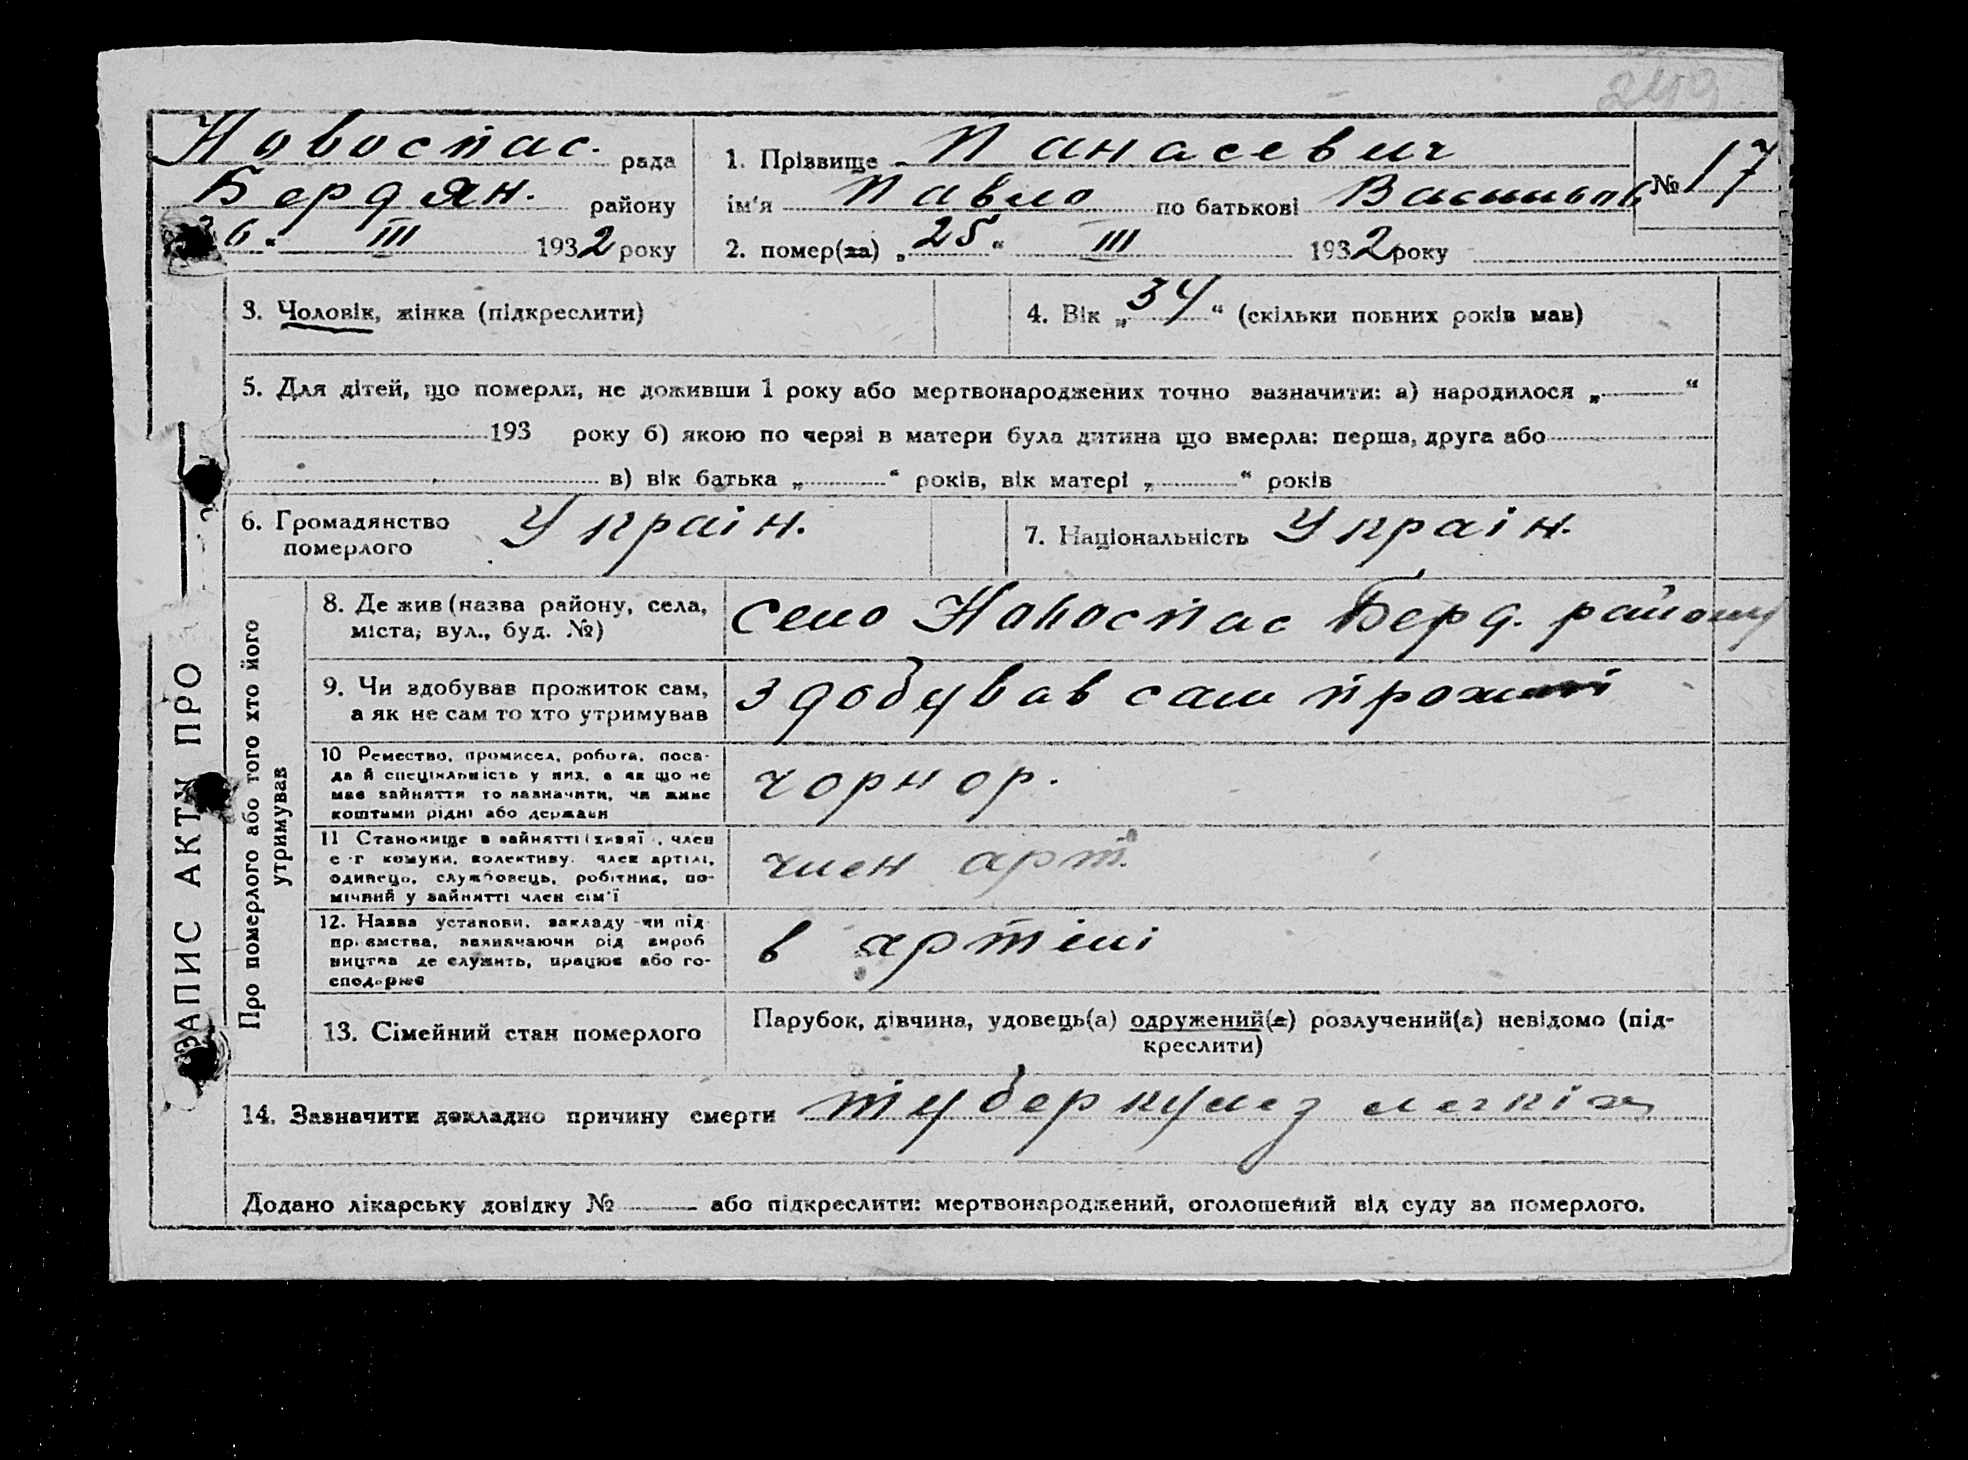 249
Новоспас. рада
Бердян. району
26 " III 1932 року
1. Прізвище Панасевич
ім'я Павло по батькові Васильов
№ 17
2. помер(ла) „25" III 1932 року
3. Чоловік, жінка (підкреслити)
4. Вік „34" (скільки повних років мав)
5. Для дітей, що померли, не доживши 1 року або мертвонароджених точно зазначити: а) народилося „ "
193 року б) якою по черзі в матери була дитина що вмерла: перша, друга або
в) вік батька „ " років, вік матері „ " років
6. Громадянство
померлого
Украін.
7. Національність Украін.
ЗАПИС АКТУ ПРО
Про померлого або того хто його
утримував
8. Де жив (назва району, села,
міста, вул., буд. №)
село Новоспас Берд. району
9. Чи здобував прожиток сам,
а як не сам то хто утримував
здобував сам
10 Ремество, промисел, робота, поса-
да й спеціяльність у них, а як що не
має зайняття то зазначити, чи живе
коштами рідні або держави
чорнор.
11 Становище в зайнятті (хазяї, член
с-г комуни, колективу, член артілі,
одинець, службовець, робітник, по-
мічний у зайнятті член сім'ї
член арт.
12. Назва установи, закладу чи під-
приємства, зазначаючи рід вироб
ництва де служить, працює або го-
сподарює
в артілі
13. Сімейний стан померлого
Парубок, дівчина, удовець(а) одружений(а) розлучений(а) невідомо (під-
креслити)
14. Зазначити докладно причину смерти туберкульз легкіх
Додано лікарську довідку № або підкреслити: мертвонароджений, оголошений від суду за померлого.